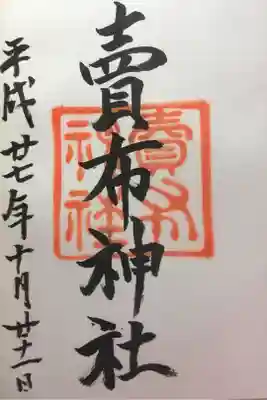 賣布神社
平成廿七年十月廿一日
賣布
神社